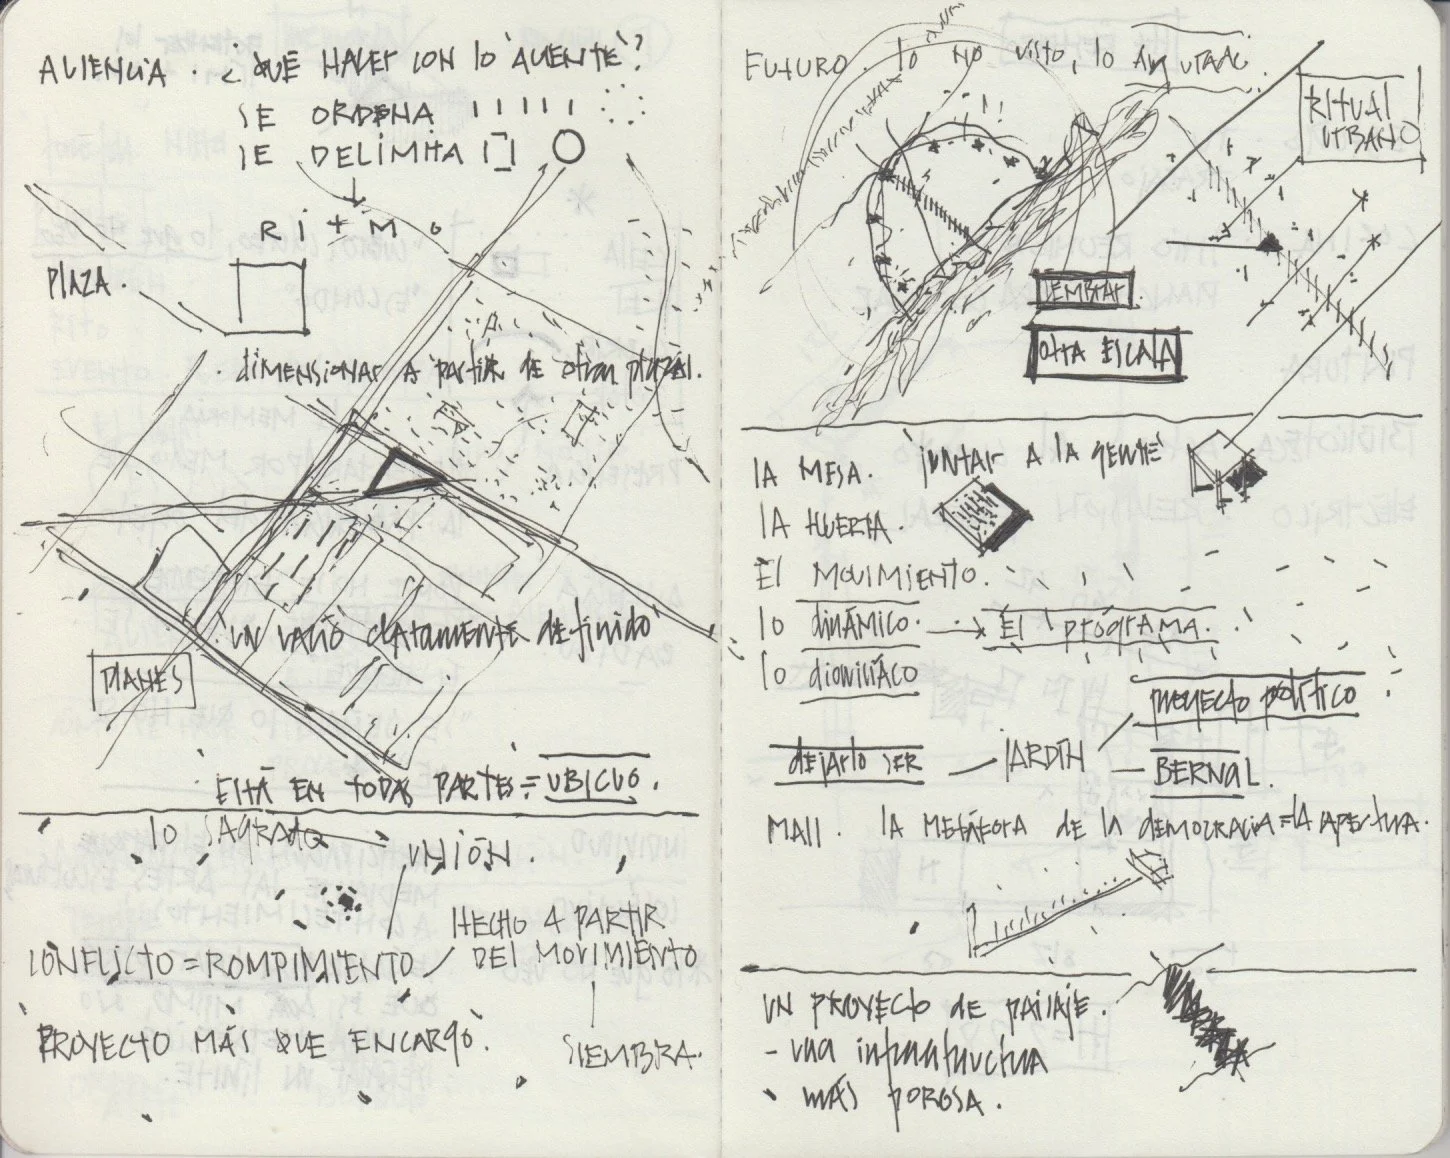 AUSENCIA. ¿QUÉ HACER CON lo 'AUSENTE'?
SE ORDENA
SE DELIMITA
RITMO
PLAZA.
. dimensionar a partir de otras plazas.
'UN VACÍO claramente definido'
PLANES
ESTÁ EN TODAS PARTES = UBICUO.
lo SAGRADO
UNIÓN.
HECHO A PARTIR
DEL MOVIMIENTO
CONFLICTO = ROMPIMIENTO
PROYECTO MÁS QUE ENCARGO.
SIEMBRA.
FUTURO. lo NO visto, lo
RITUAL
URBANO
SEMBRAR.
OTRA ESCALA
LA MESA. 'JUNTAR A LA GENTE'
LA HUERTA.
EL MOVIMIENTO.
lo dinámico. → El programa.
lo dionisíaco
proyecto político
dejarlo SER — JARDÍN — BERNAL.
MALL. LA METÁFORA de la democracia = LA APERTURA.
UN PROYECTO de PAISAJE.
- una infraestructura
MÁS POROSA.